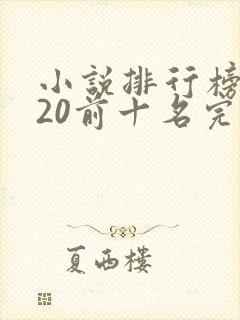 小說排行榜
20前十名完
夏西樓